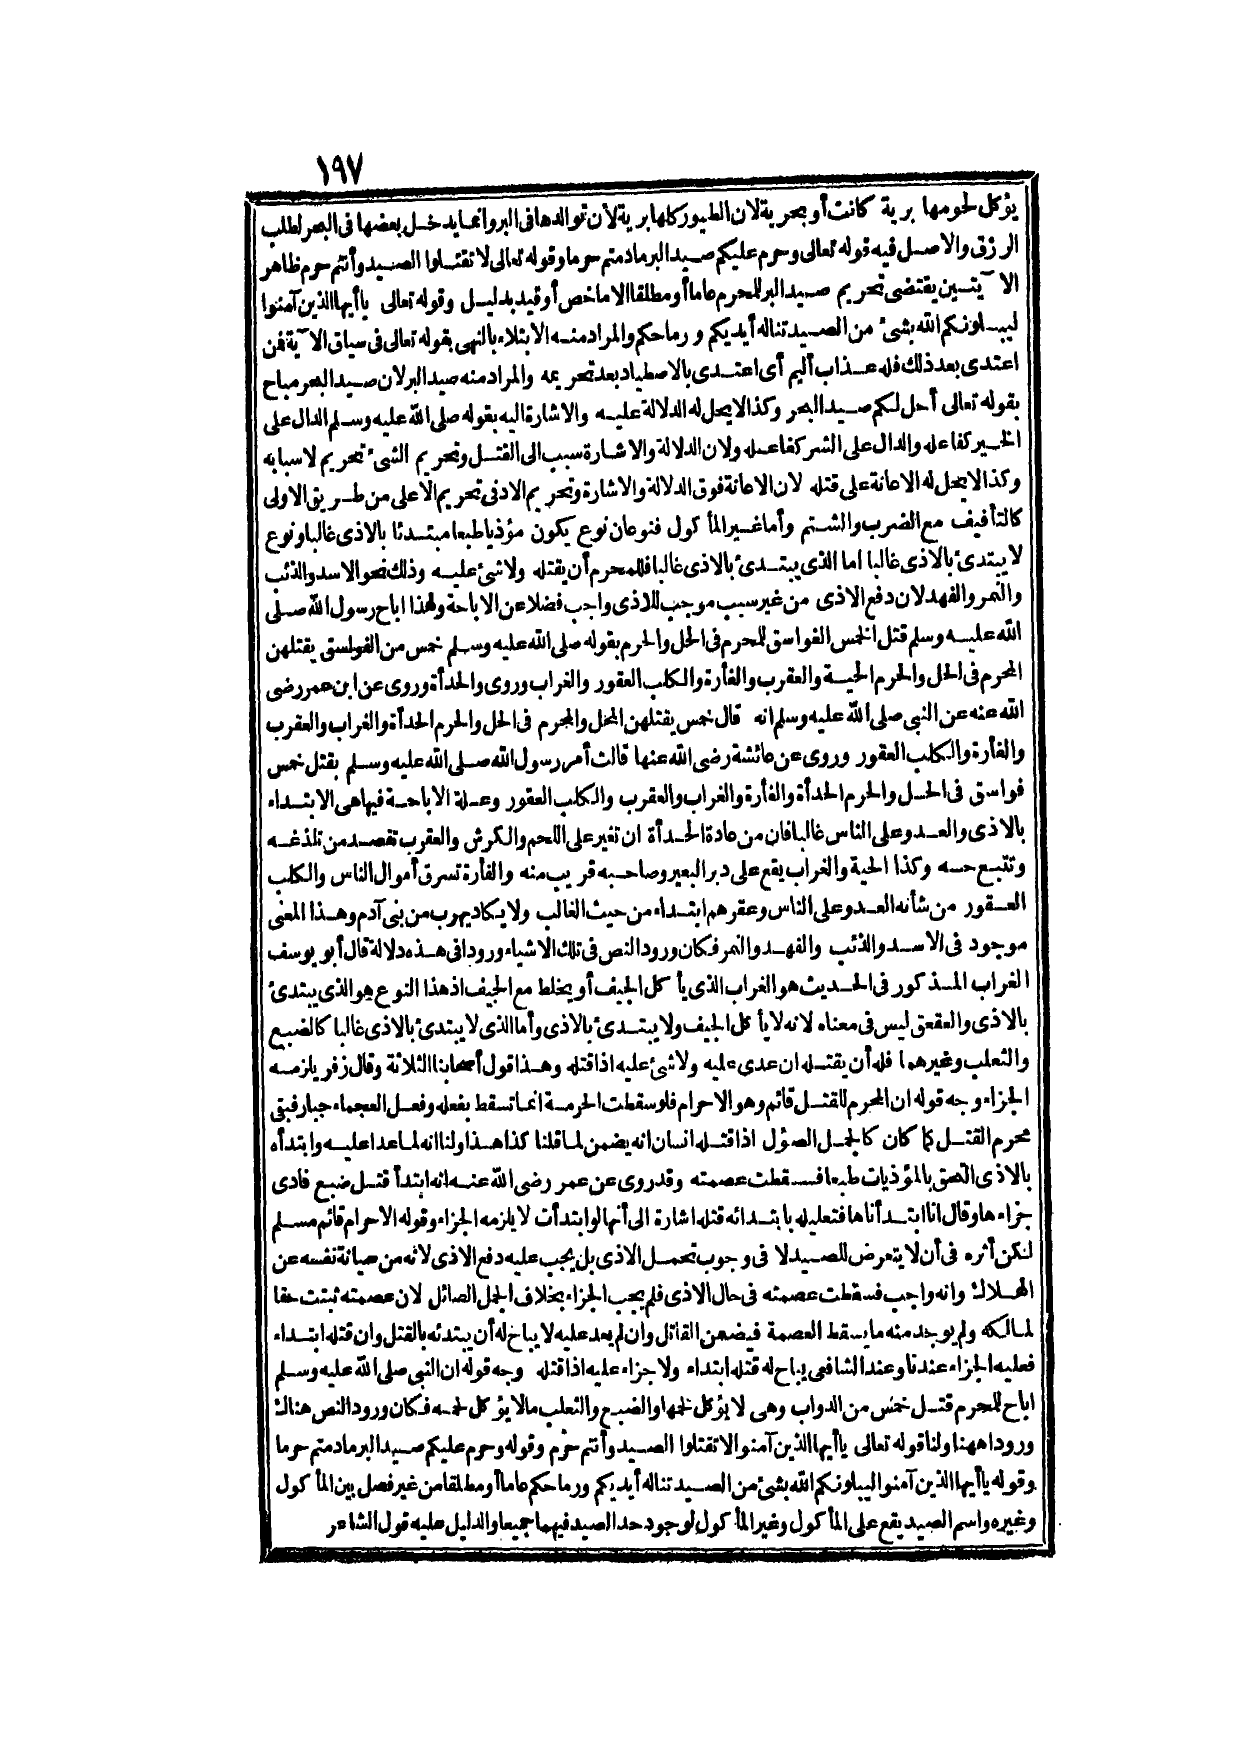 ١٩٧
يؤكل لحومها برية كانت أو بحرية لان الطيور كلها برية لأن توالدها في البر وانما يدخل بعضها في البحر لطلب
الرزق والاصل فيه قوله تعالى وحرم عليكم صيد البر ما دمتم حرما وقوله تعالى لا تقتلوا الصيد وأنتم حرم ظاهر
الآيتين يقتضى تحريم صيد البر للمحرم عاما أو مطلقا الا ما خص أو قيد بدليل وقوله تعالى ياأيها الذين آمنوا
ليبلونكم الله بشئ من الصيد تناله أيديكم ورماحكم والمراد منه الابتلاء بالنهى بقوله تعالى في سياق الآية فمن
اعتدى بعد ذلك فله عذاب أليم أى اعتدى بالاصطياد بعد تحريمه والمراد منه صيد البر لان صيد البحر مباح
بقوله تعالى أحل لكم صيد البحر وكذا لا يحل له الدلالة عليه والاشارة اليه بقوله صلى الله عليه وسلم الدال على
الخير كفاعله والدال على الشر كفاعله ولان الدلالة والاشارة سبب الى القتل وتحريم الشئ تحريم لاسبابه
وكذا لا يحل له الاعانة على قتله لان الاعانة فوق الدلالة والاشارة وتحريم الادنى تحريم الاعلى من طريق الاولى
كالتأفيف مع الضرب والشتم وأما غير المأكول فنوعان نوع يكون مؤذيا طبعا مبتدئا بالاذى غالبا ونوع
لا يبتدئ بالاذى غالبا اما الذى يبتدئ بالاذى غالبا فللمحرم أن يقتله ولا شئ عليه وذلك نحو الاسد والذئب
والنمر والفهد لان دفع الاذى من غير سبب موجب للاذى واجب فضلا عن الاباحة ولهذا اباح رسول الله صلى
الله عليه وسلم قتل الخمس الفواسق للمحرم في الحل والحرم بقوله صلى الله عليه وسلم خمس من الفواسق يقتلهن
المحرم في الحل والحرم الحية والعقرب والفأرة والكلب العقور والغراب وروى والحدأة وروى عن ابن عمر رضى
الله عنه عن النبي صلى الله عليه وسلم انه قال خمس يقتلهن المحل والمحرم في الحل والحرم الحدأة والغراب والعقرب
والفأرة والكلب العقور وروى عن عائشة رضى الله عنها قالت أمر رسول الله صلى الله عليه وسلم بقتل خمس
فواسق في الحل والحرم الحدأة والفأرة والغراب والعقرب والكلب العقور وعلة الاباحة فيها هى الابتداء
بالاذى والعدو على الناس غالبا فان من عادة الحدأة ان تغير على اللحم والكرش والعقرب تقصد من تلدغه
وتتبع حسه وكذا الحية والغراب يقع على دبر البعير وصاحبه قريب منه والفأرة تسرق أموال الناس والكلب
العقور من شأنه العدو على الناس وعقرهم ابتداء من حيث الغالب ولا يكاد يهرب من بنى آدم وهذا المعنى
موجود في الاسد والذئب والفهد والنمر فكان ورود النص في تلك الاشياء ورودا في هذه دلالة قال أبو يوسف
الغراب المذكور في الحديث هو الغراب الذى يأكل الجيف أو يخلط مع الجيف اذ هذا النوع هو الذى يبتدئ
بالاذى والعقعق ليس في معناه لانه لا يأكل الجيف ولا يبتدئ بالاذى وأما الذى لا يبتدئ بالاذى غالبا كالضبع
والثعلب وغيرهما فله أن يقتله ان عدى عليه ولا شئ عليه اذا قتله وهذا قول أصحابنا الثلاثة وقال زفر يلزمه
الجزاء وجه قوله ان المحرم للقتل قائم وهو الاحرام فلو سقطت الحرمة انما تسقط بفعله وفعل العجماء جبار فبقى
محرم القتل كما كان كالجمل الصؤل اذا قتله انسان انه يضمن لما قلنا كذا هذا ولنا انه لما عدا عليه وابتدأه
بالاذى التحق بالمؤذيات طبعا فسقطت عصمته وقد روى عن عمر رضى الله عنه انه ابتدأ قتل ضبع فادى
جزاءها وقال انا ابتدأناها فتعليله بابتدائه قتله اشارة الى أنها لو ابتدأت لا يلزمه الجزاء وقوله الاحرام قائم مسلم
لكن أثره في أن لا يتعرض للصيد لا في وجوب تحمل الاذى بل يجب عليه دفع الاذى لانه من صيانة نفسه عن
الهلاك وانه واجب فسقطت عصمته في حال الاذى فلم يجب الجزاء بخلاف الجمل الصائل لان عصمته ثبتت حقا
لمالكه ولم يوجد منه ما يسقط العصمة فيضمن القاتل وان لم يعد عليه لا يباح له أن يبتدئه بالقتل وان قتله ابتداء
فعليه الجزاء عندنا وعند الشافعى يباح له قتله ابتداء ولا جزاء عليه اذا قتله وجه قوله ان النبي صلى الله عليه وسلم
اباح للمحرم قتل خمس من الدواب وهى لا يؤكل لحمها والضبع والثعلب مالا يؤكل لحمه فكان ورود النص هناك
ورودا ههنا ولنا قوله تعالى ياأيها الذين آمنوا لا تقتلوا الصيد وأنتم حرم وقوله وحرم عليكم صيد البر ما دمتم حرما
وقوله ياأيها الذين آمنوا ليبلونكم الله بشئ من الصيد تناله أيديكم ورماحكم عاما أو مطلقا من غير فصل بين المأكول
وغيره واسم الصيد يقع على المأكول وغير المأكول لوجود حد الصيد فيهما جميعا والدليل عليه قول الشاعر